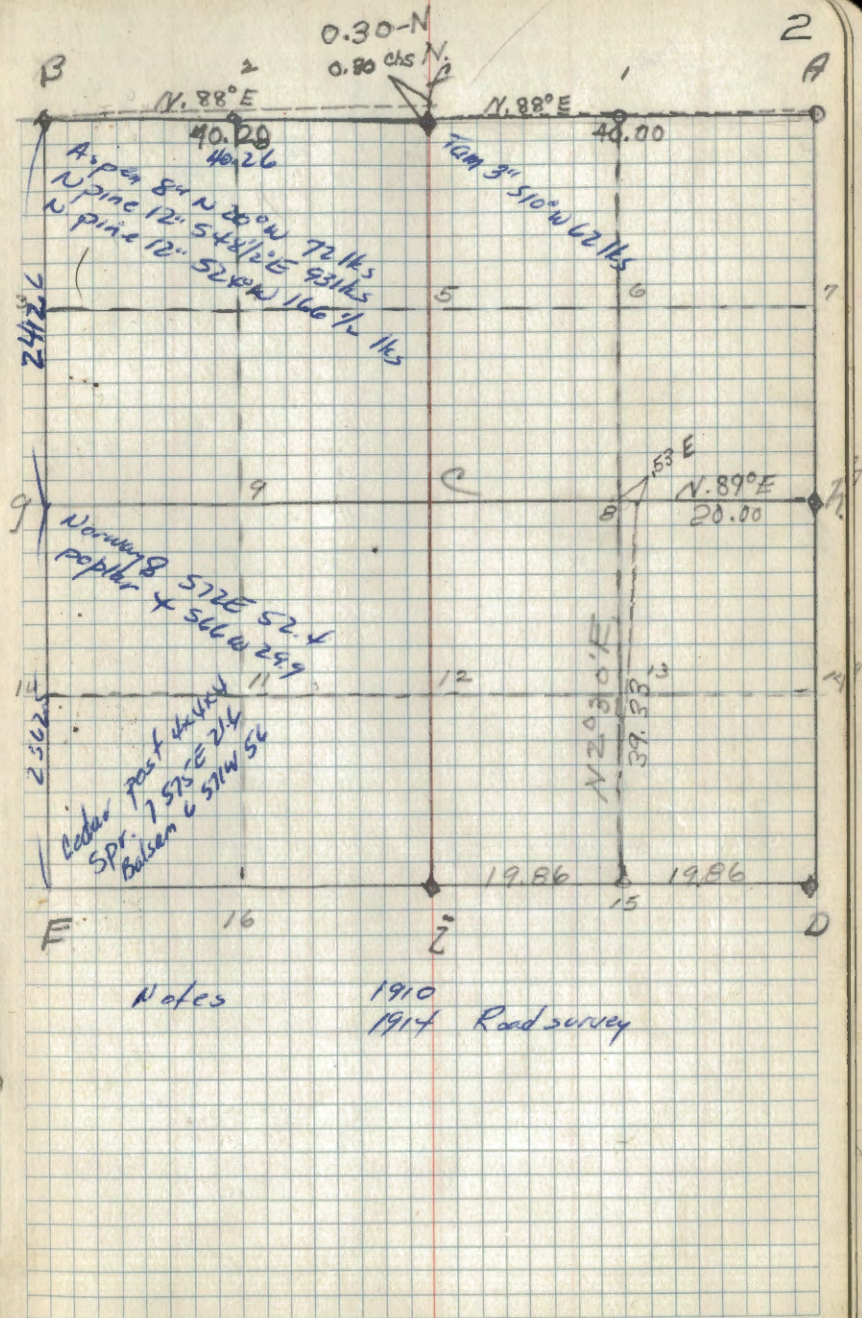 2
0.30-N
0.30 chs N.
B 2 f 1 A
N. 88°E N. 88°E
40.20 40.00
40.26
Aspen 8" N 20°W 72 lks
N pine 12" S 48 1/2°E 93 lks
N pine 12" S 24°W 166 1/2 lks
Tam 3" S10°W 62 lks
5 6 7
.53 E
g 9 C 8 N. 89°E h
20.00
Norway 8 S72E 52.4
poplar 4 S66W 29.9
N2°30'E
39.33
14 11 12 13 14
Cedar post 4x4x4
Spr. 7 S75E 21.4
Balsam 6 S71W 56
19.86 19.86
E 16 i 15 D
Notes 1910
1914 Road survey